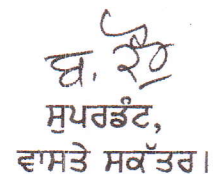 ਸੁਪਰਡੰਟ,
ਵਾਸਤੇ ਸਕੱਤਰ।